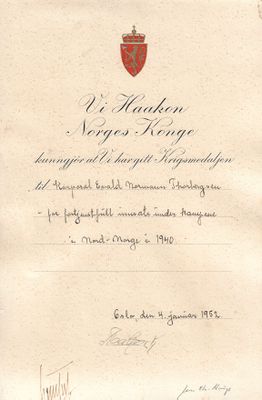 Vi Haakon
Norges Konge
kunngjör at Vi har gitt Krigsmedaljen
til Korporal Evald Normann Thorbergsen
- for fortjenstfull innsats under kampene
i Nord-Norge i 1940.
Oslo, den 4. januar 1952